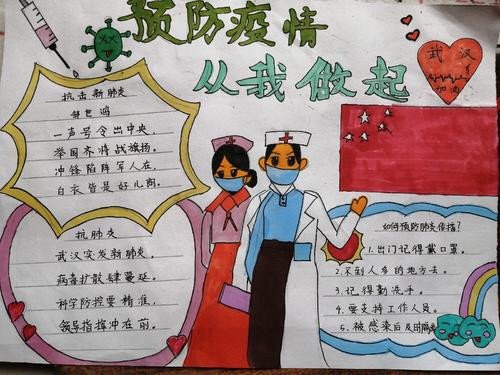 预防疫情
从我做起
武汉
加油
抗击新肺炎
邹世鸿
一声号令出中央，
举国齐将战旗扬。
冲锋陷阵军人在，
白衣皆是好儿商。
抗肺炎
武汉突发新肺炎，
病毒扩散肆蔓延。
科学防控要精准，
领导指挥冲在前。
如何预防肺炎传播？
1.出门记得戴口罩。
2.不到人多的地方去。
3.记得勤洗手。
4.要支持工作人员。
5.被感染后及时隔离